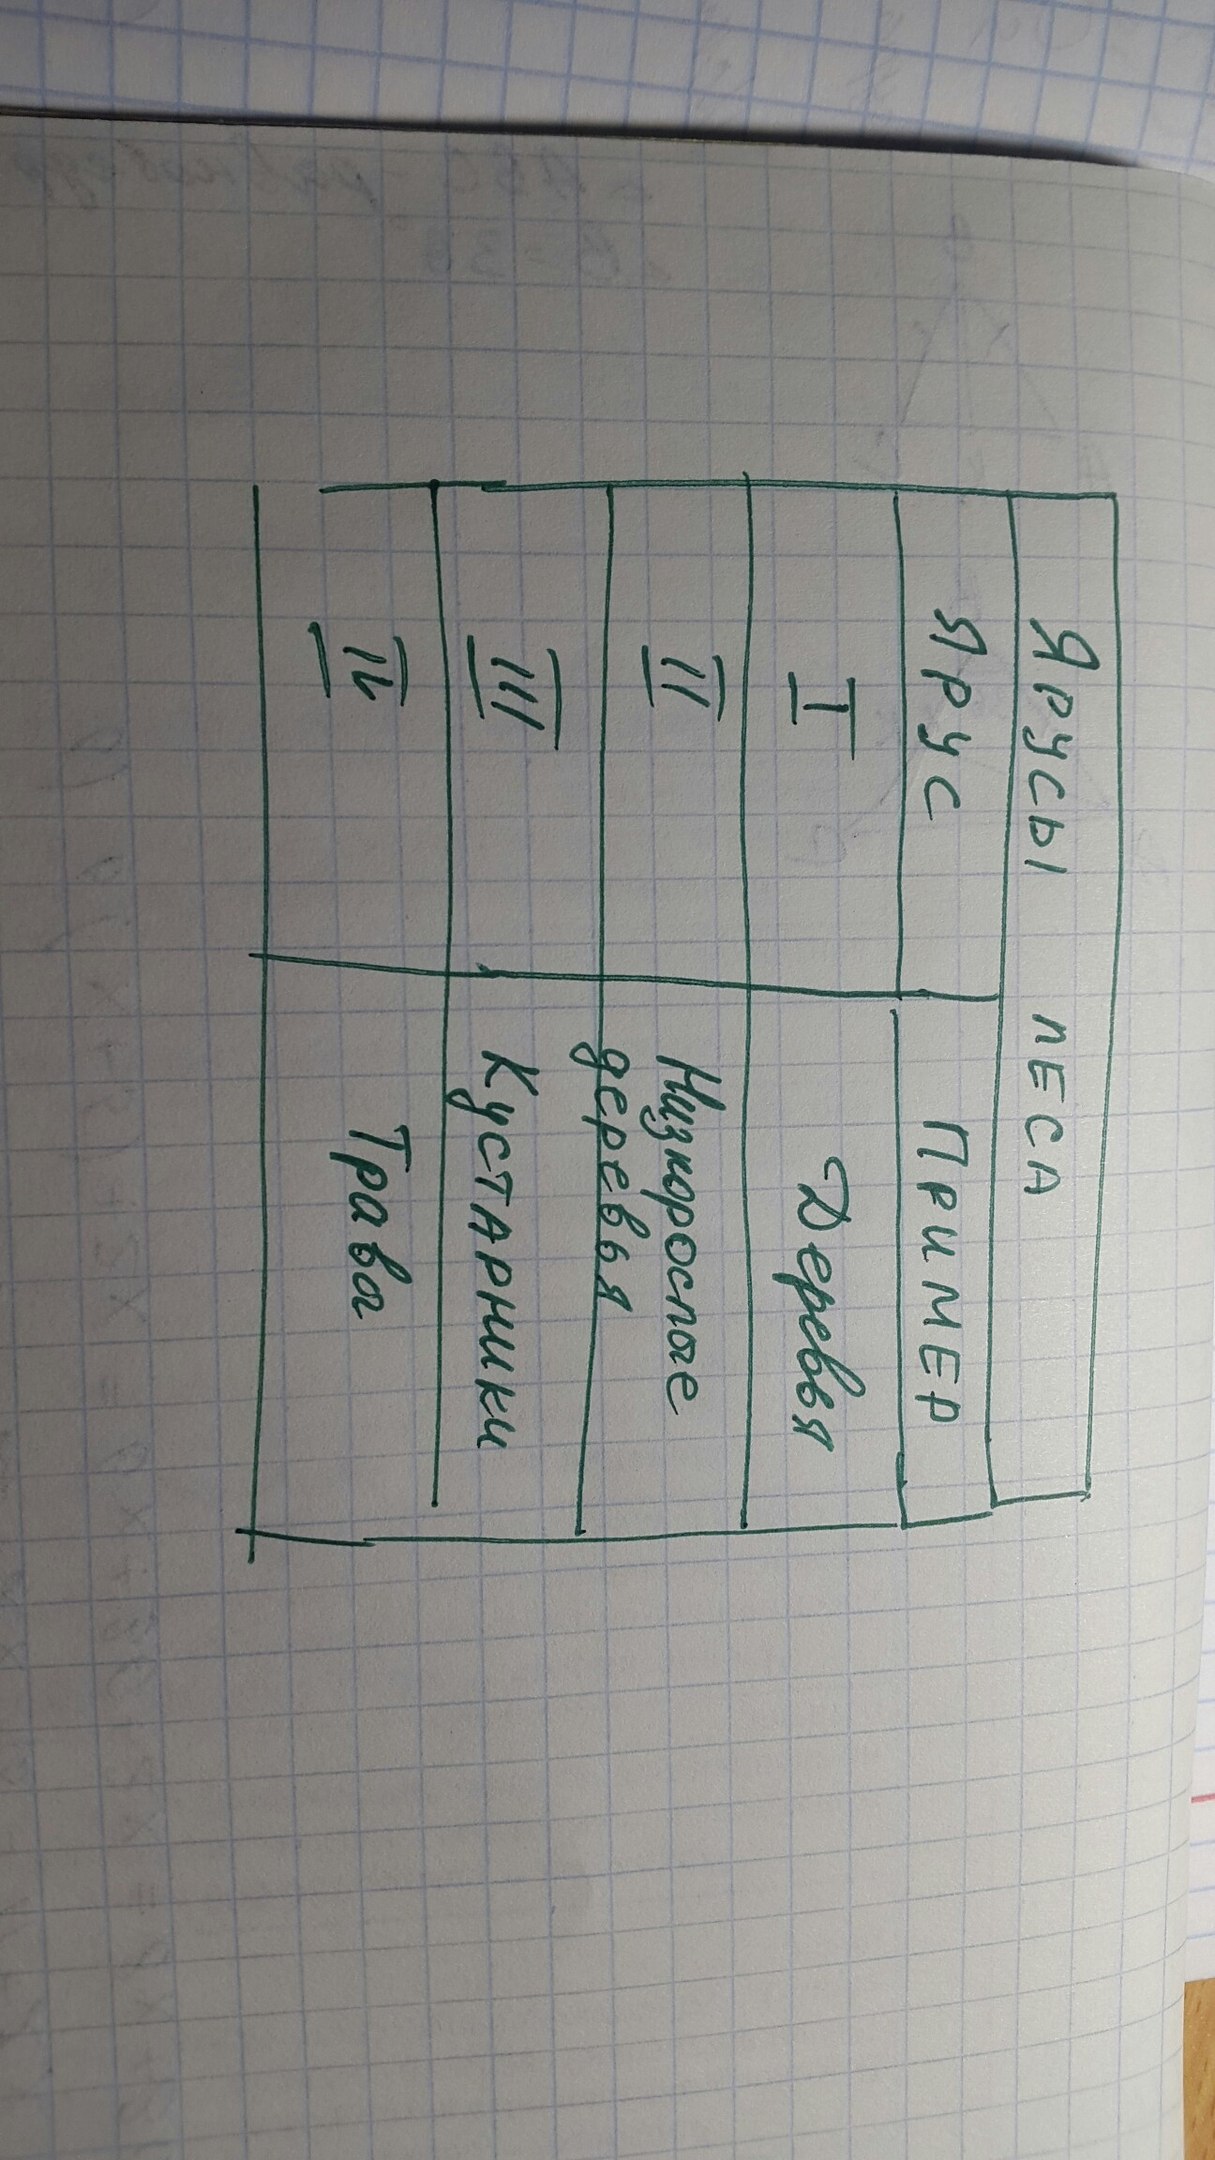 Ярусы леса
Ярус Пример
I Деревья
II Низкорослые
деревья
III Кустарники
IV Трава